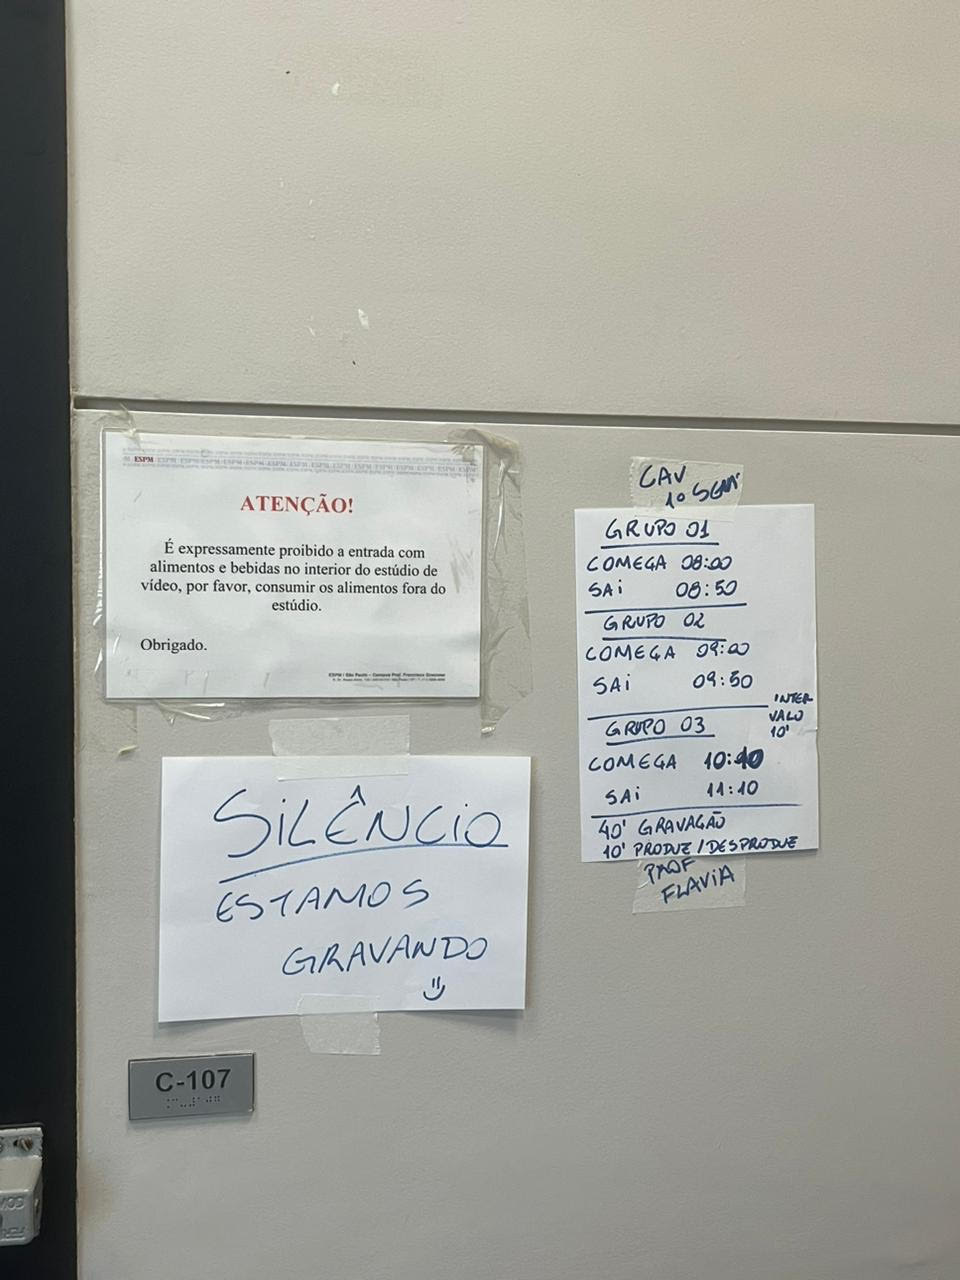 ESPM
ATENÇÃO!
É expressamente proibido a entrada com
alimentos e bebidas no interior do estúdio de
vídeo, por favor, consumir os alimentos fora do
estúdio.
Obrigado.
ESPM / São Paulo - Campus Prof. Francisco Gracioso
SILÊNCIO
ESTAMOS
GRAVANDO
C-107
CAV
1º SEM
GRUPO 01
COMEÇA 08:00
SAI 08:50
GRUPO 02
COMEÇA 09:00
SAI 09:50
INTER
VALO
10'
GRUPO 03
COMEÇA 10:10
SAI 11:10
40' GRAVAÇÃO
10' PRODUE/DESPRODUE
PROF
FLAVIA